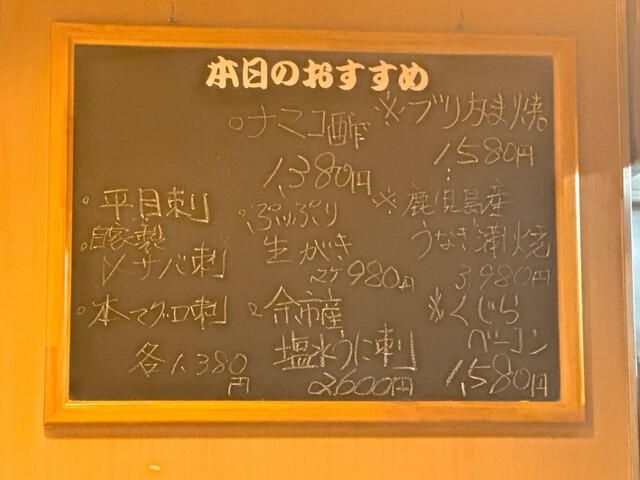 本日のおすすめ
※ブリかま焼
1,580円
※鹿児島産
うなぎ蒲焼
3,980円
※くじら
ベーコン
1,580円
○ナマコ酢
1,380円
○ぷりぷり
生がき
2ケ980円
○余市産
塩水うに刺
2600円
○平目刺
○自家製
〆サバ刺
○本マグロ刺
各1,380
円